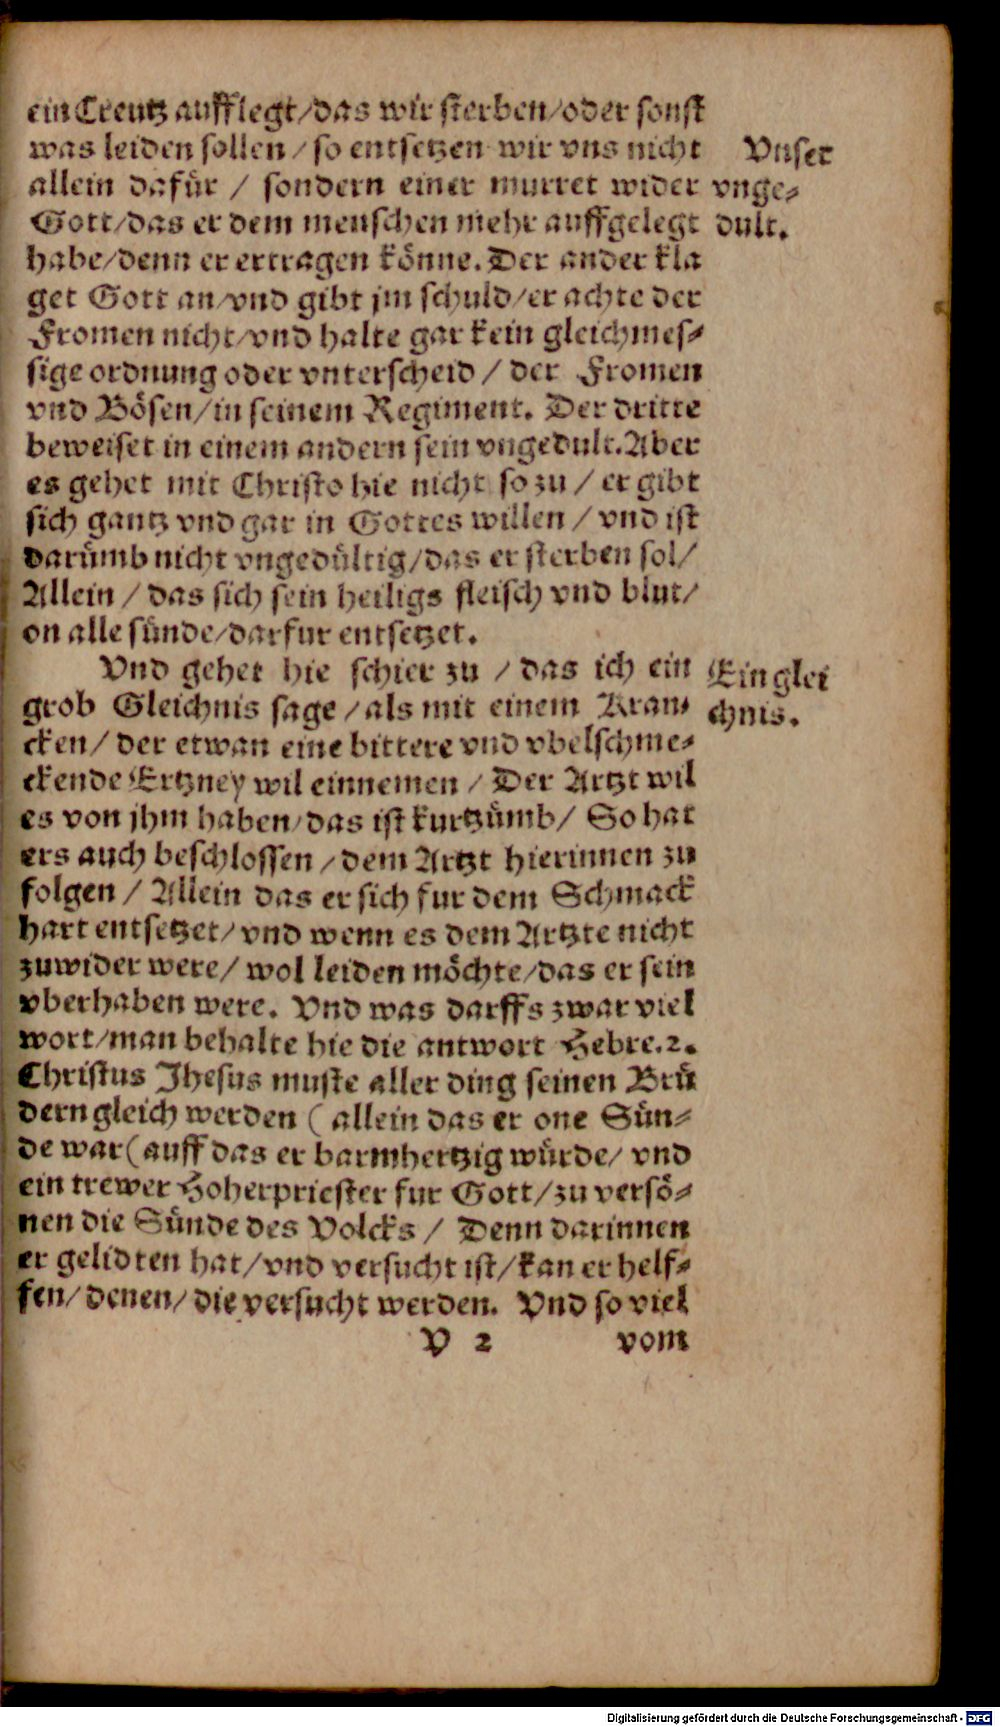 ein Creutz aufflegt/das wir sterben/oder sonst
was leiden sollen/so entsetzen wir vns nicht
allein dafür / sondern einer murret wider
Gott/das er dem menschen mehr auffgelegt
habe/denn er ertragen könne. Der ander kla
get Gott an/vnd gibt jm schuld/er achte der
Fromen nicht/vnd halte gar kein gleichmes-
sige ordnung oder vnterscheid / der Fromen
vnd Bösen/in seinem Regiment. Der dritte
beweiset in einem andern sein vngedult. Aber
es gehet mit Christo hie nicht so zu / er gibt
sich gantz vnd gar in Gottes willen / vnd ist
darümb nicht vngedültig/das er sterben sol/
Allein / das sich sein heiligs fleisch vnd blut/
on alle sünde/darfur entsetzet.
Vnser
vnge-
dult.
Vnd gehet hie schier zu / das ich ein
grob Gleichnis sage/als mit einem Kran-
cken/ der etwan eine bittere vnd vbelschme-
ckende Ertzney wil einnemen / Der Artzt wil
es von jhm haben/das ist kurtzümb/ So hat
ers auch beschlossen/dem Artzt hierinnen zu
folgen / Allein das er sich fur dem Schmack
hart entsetzet/vnd wenn es dem Artzte nicht
zuwider were/ wol leiden möchte/das er sein
vberhaben were. Vnd was darffs zwar viel
wort/man behalte hie die antwort Hebre.2.
Christus Jhesus muste aller ding seinen Brü
dern gleich werden ( allein das er one Sün-
de war(auff das er barmhertzig würde/ vnd
ein trewer Hoherpriester fur Gott/zu versö-
nen die Sünde des Volcks / Denn darinnen
er gelidten hat/vnd versucht ist/kan er helf-
fen/denen/die versucht werden. Vnd so viel
Ein glei
chnis.
V 2
vom
Digitalisierung gefördert durch die Deutsche Forschungsgemeinschaft - DFG